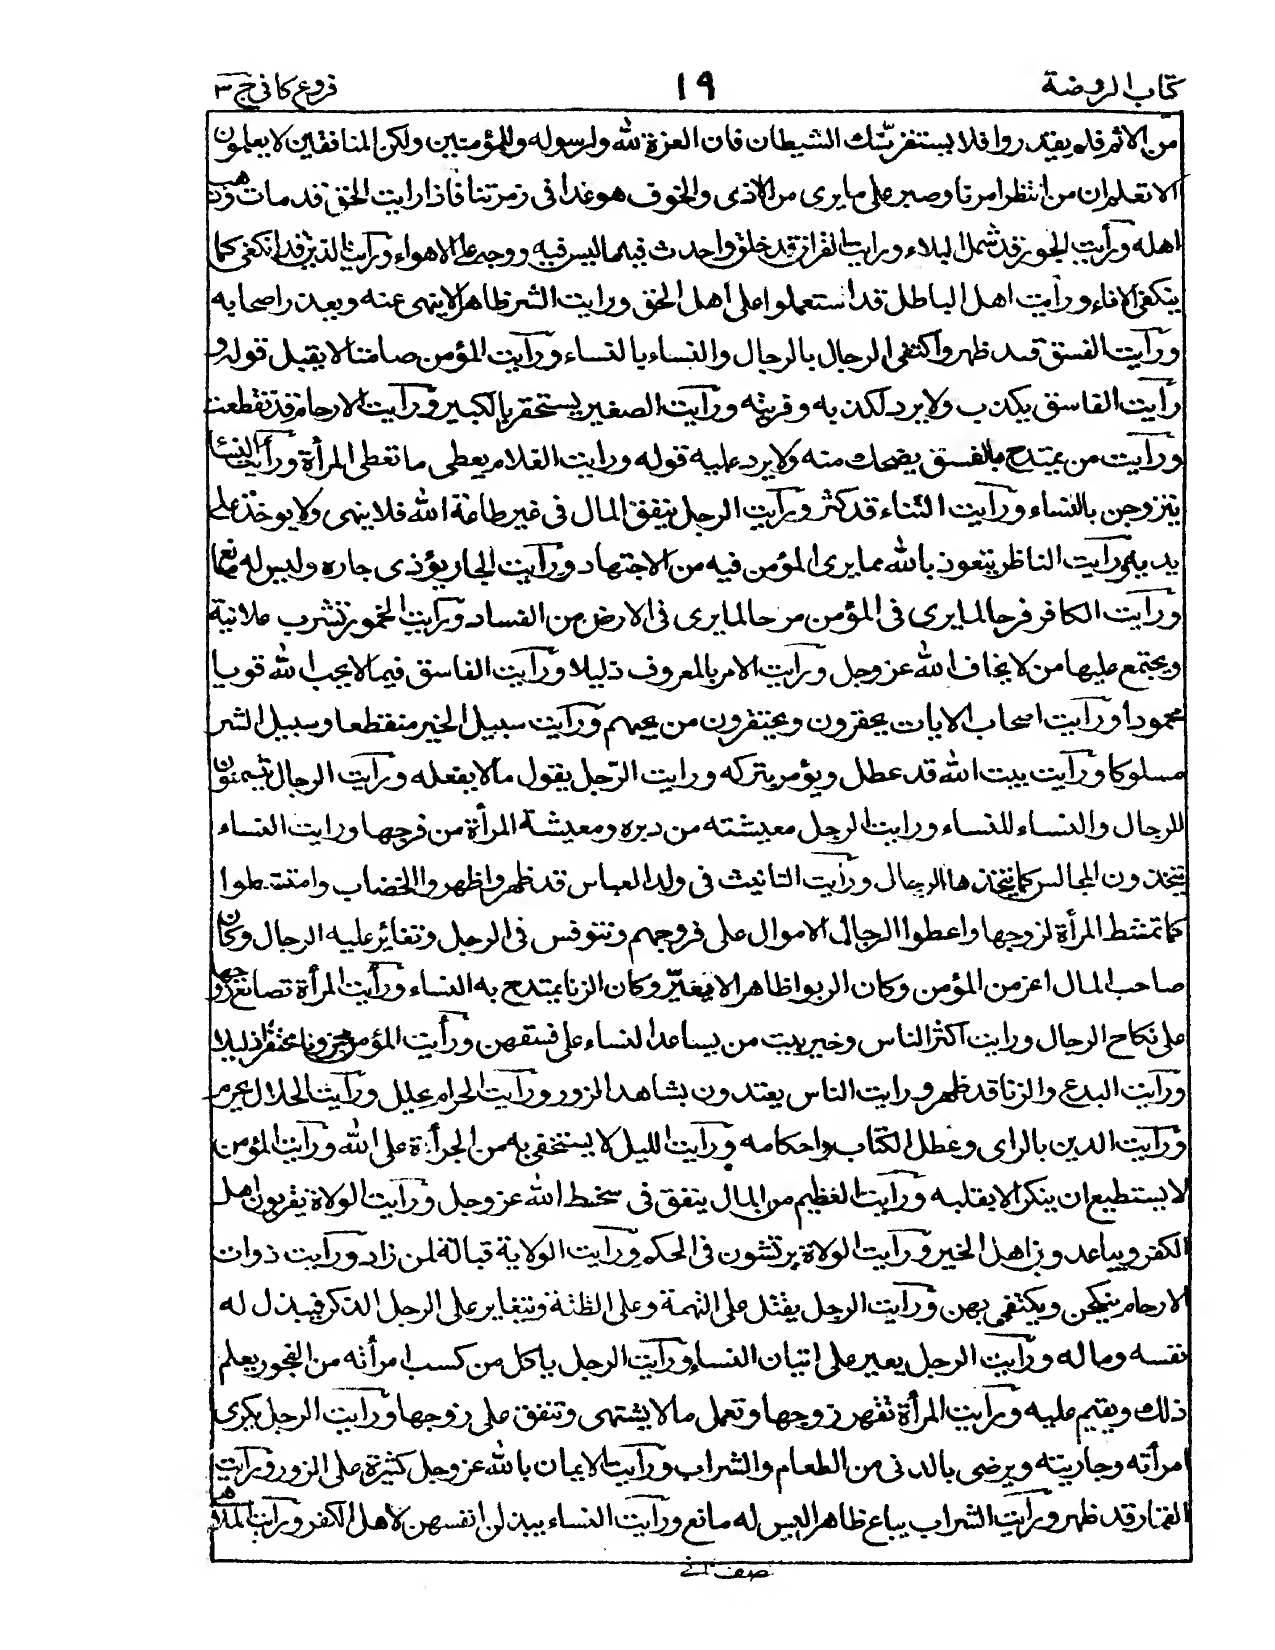 كتاب الروضة ١٩ فروع كافي ج ٣
من الاثم فلم يقدروا فلا يستفزنّك الشيطان فان العزة لله ولرسوله وللمؤمنين ولكن المنافقين لا يعلمون
الا تعلم ان من انتظر امرنا وصبر على ما يرى من الاذى والخوف هو غدا في زمرتنا فاذا رايت الحق قد مات وذهب
اهله ورأيت الجور قد شمل البلاد ورايت القران قد خلق واحدث فيه ما ليس فيه ووجه على الاهواء ورأيت الدين قد انكفى كما
ينكفئ الاناء ورأيت اهل الباطل قد استعملوا على اهل الحق ورايت الشر ظاهرا لا ينهى عنه ويعذر اصحابه
ورأيت الفسق قد ظهر واكتفى الرجال بالرجال والنساء بالنساء ورأيت المؤمن صامتا لا يقبل قوله و
رأيت الفاسق يكذب ولا يرد كذبه وفريته ورأيت الصغير يستحقر بالكبير ورأيت الارحام قد تقطعت
ورأيت من يمتدح بالفسق يضحك منه ولا يرد عليه قوله ورايت الغلام يعطى ما تعطى المرأة ورأيت النساء
يتزوجن بالنساء ورأيت الثناء قد كثر ورأيت الرجل ينفق المال في غير طاعة الله فلا ينهى ولا يوخذ على
يديه ورأيت الناظر يتعوذ بالله مما يرى المؤمن فيه من الاجتهاد ورأيت الجار يؤذى جاره وليس له مانع
ورأيت الكافر فرحا لما يرى في المؤمن مرحا لما يرى في الارض من الفساد ورأيت الخمور تشرب علانية
ويجتمع عليها من لا يخاف الله عز وجل ورأيت الامر بالمعروف ذليلا ورأيت الفاسق فيما لا يحب الله قويا
محمودا ورأيت اصحاب الايات يحقرون ويحتقرون من يحبهم ورأيت سبيل الخير منقطعا وسبيل الشر
مسلوكا ورأيت بيت الله قد عطل ويؤمر بتركه ورايت الرّجل يقول ما لا يفعله ورأيت الرجال يتسمنون
للرجال والنساء للنساء ورايت الرجل معيشته من دبره ومعيشة المرأة من فرجها ورايت النساء
يتخذون المجالس كما يتخذها الرجال ورأيت التانيث في ولد العباس قد ظهر واظهروا الخضاب وامتشطوا
كما تمتشط المرأة لزوجها واعطوا الرجال الاموال على فروجهم وتنوفس في الرجل وتغاير عليه الرجال وكان
صاحب المال اعز من المؤمن وكان الربوا ظاهرا لا يغيّر وكان الزنا يمتدح به النساء ورأيت المرأة تصانع زوجها
على نكاح الرجال ورايت اكثر الناس وخير بيت من يساعد النساء على فسقهن ورأيت المؤمن محزونا محتقرا ذليلا
ورأيت البدع والزنا قد ظهر ورايت الناس يعتدون بشاهد الزور ورأيت الحرام يحلل ورأيت الحلال يحرم
ورأيت الدين بالراى وعطل الكتاب واحكامه ورأيت الليل لا يستخفى به من الجرأة على الله ورأيت المؤمن
لا يستطيع ان ينكر الا بقلبه ورأيت العظيم من المال ينفق في سخط الله عز وجل ورأيت الولاة يقربون اهل
الكفر ويباعدون اهل الخير ورأيت الولاة يرتشون في الحكم ورأيت الولاية قبالة لمن زاد ورأيت ذوات
الارحام ينكحن ويكتفى بهن ورأيت الرجل يقتل على التهمة وعلى الظنة ويتغاير على الرجل الذكر فيبذل له
نفسه وماله ورأيت الرجل يعير على اتيان النساء ورأيت الرجل ياكل من كسب امرأته من الفجور يعلم
ذلك ويقيم عليه ورأيت المرأة تقهر زوجها وتعمل ما لا يشتهى وتنفق على زوجها ورأيت الرجل يكرى
امرأته وجاريته ويرضى بالدنى من الطعام والشراب ورأيت الايمان بالله عز وجل كثيرة على الزور ورأيت
القمار قد ظهر ورأيت الشراب يباع ظاهرا ليس له مانع ورأيت النساء يبذلن انفسهن لاهل الكفر ورأيت الملاهى